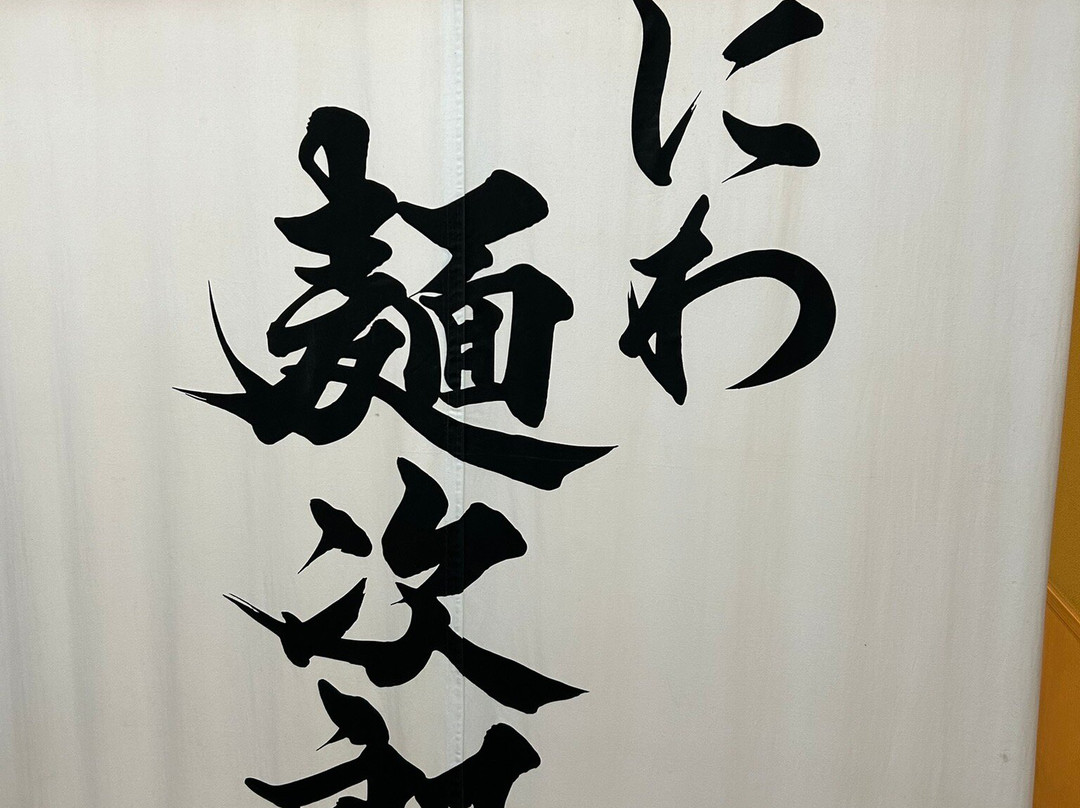 にわ
麺次